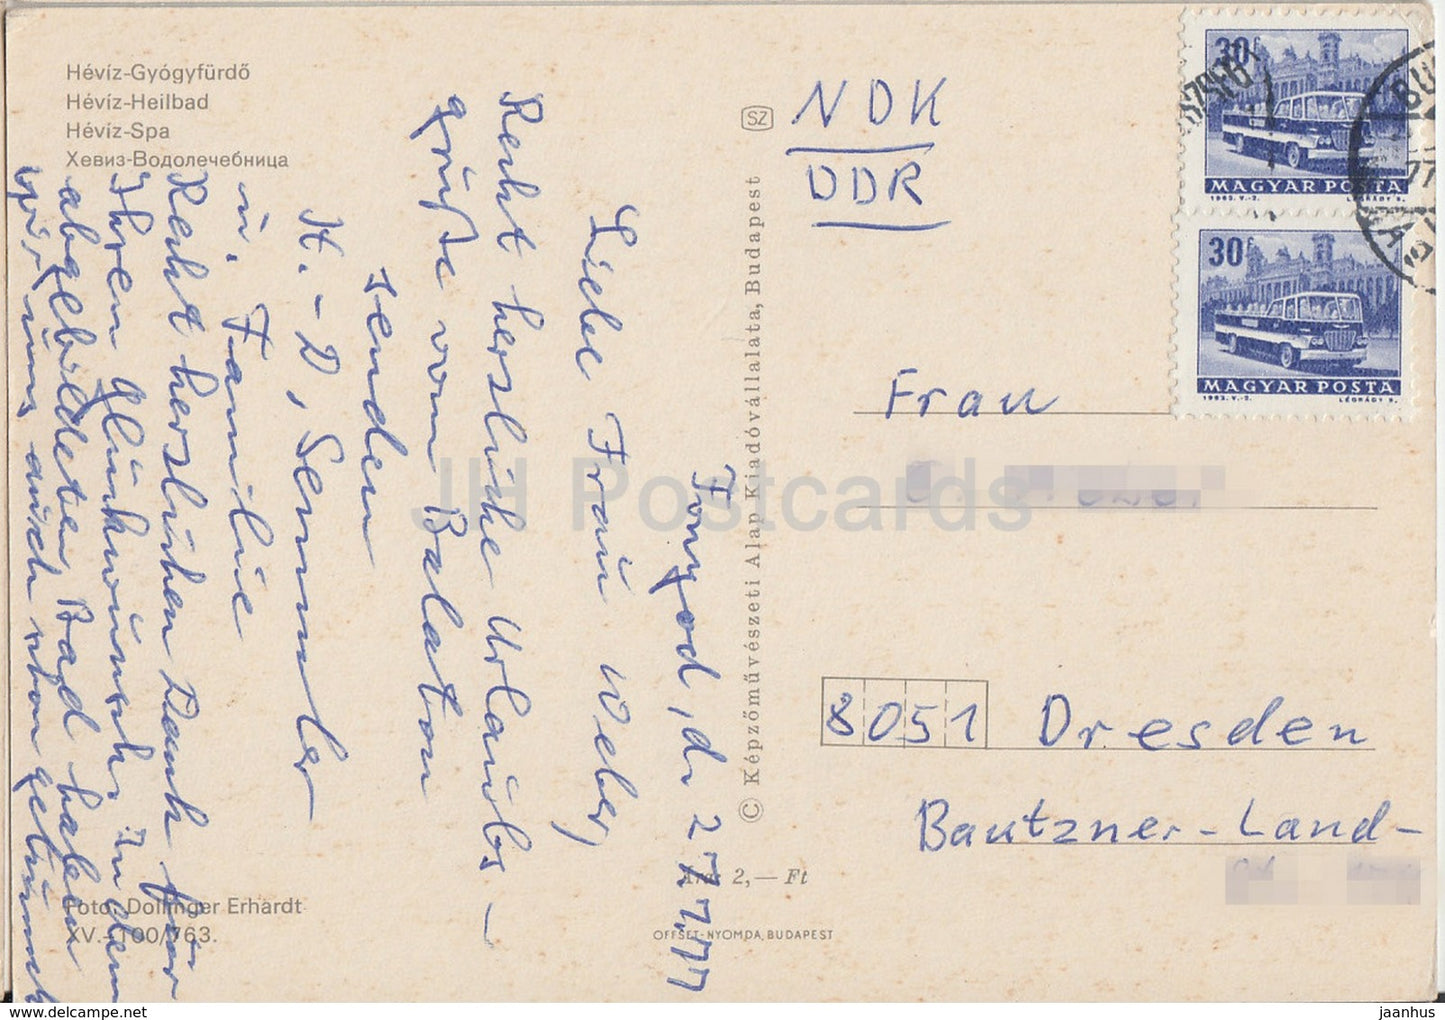 Hévíz-Gyógyfürdő
Hévíz-Heilbad
Hévíz-Spa
Хевиз-Водолечебница
Fonyod, d. 27.7.77
Liebe Frau Weber,
Recht herzliche Urlaubs-
grüße vom Balaton
senden
H.-D. Semmler
u. Familie
Recht herzlichen Dank für
Ihren Glückwunsch. In dem
abgebildeten Bad haben
wir uns auch schon getummelt
Foto: Dollinger Erhardt
XV.-100/763.
SZ
© Képzőművészeti Alap Kiadóvállalata, Budapest
Ára: 2,— Ft
OFFSET-NYOMDA, BUDAPEST
NDK
DDR
30f
MAGYAR POSTA
1963. V.-2. LÉGRÁDY S.
30f
MAGYAR POSTA
1963. V.-2. LÉGRÁDY S.
Frau
8051 Dresden
Bautzner-Land-
JH Postcards
jaanhus